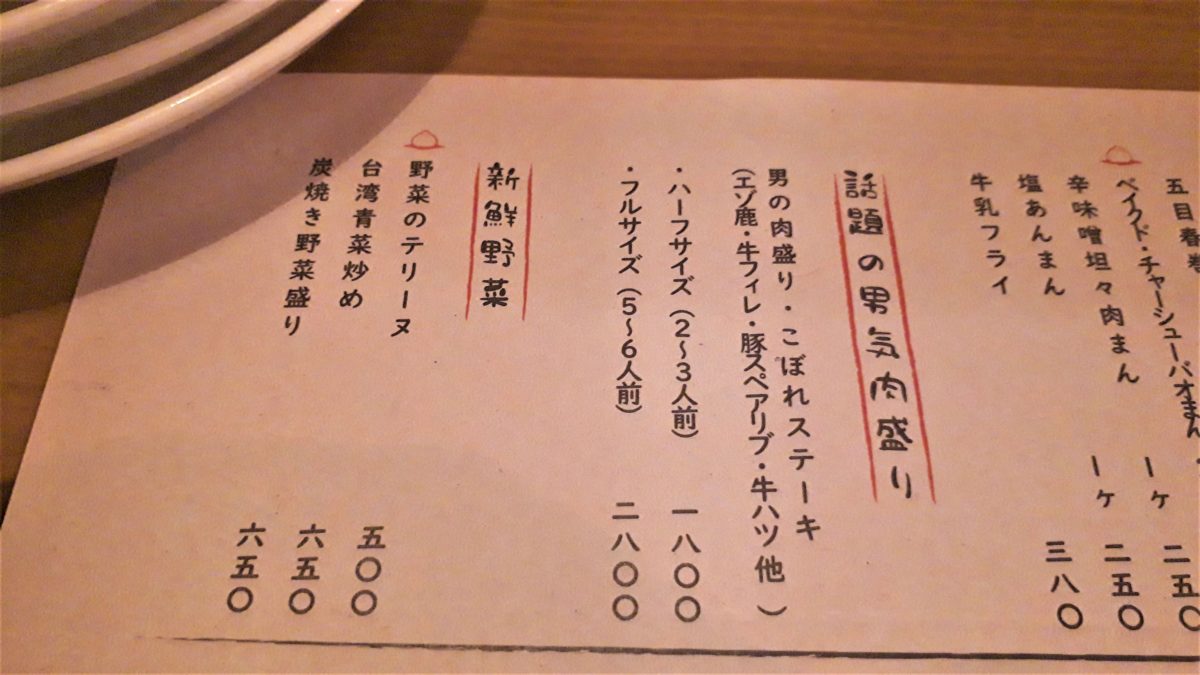 五目春巻
ベイクド・チャーシューパオまん
辛味噌坦々肉まん 一ヶ 二五〇
塩あんまん 一ヶ 二五〇
牛乳フライ 三八〇
話題の男気肉盛り
男の肉盛り・こぼれステーキ
(エゾ鹿・牛フィレ・豚スペアリブ・牛ハツ 他 )
・ハーフサイズ(2〜3人前) 一八〇〇
・フルサイズ(5〜6人前) 二八〇〇
新鮮野菜
野菜のテリーヌ 五〇〇
台湾青菜炒め 六五〇
炭焼き野菜盛り 六五〇